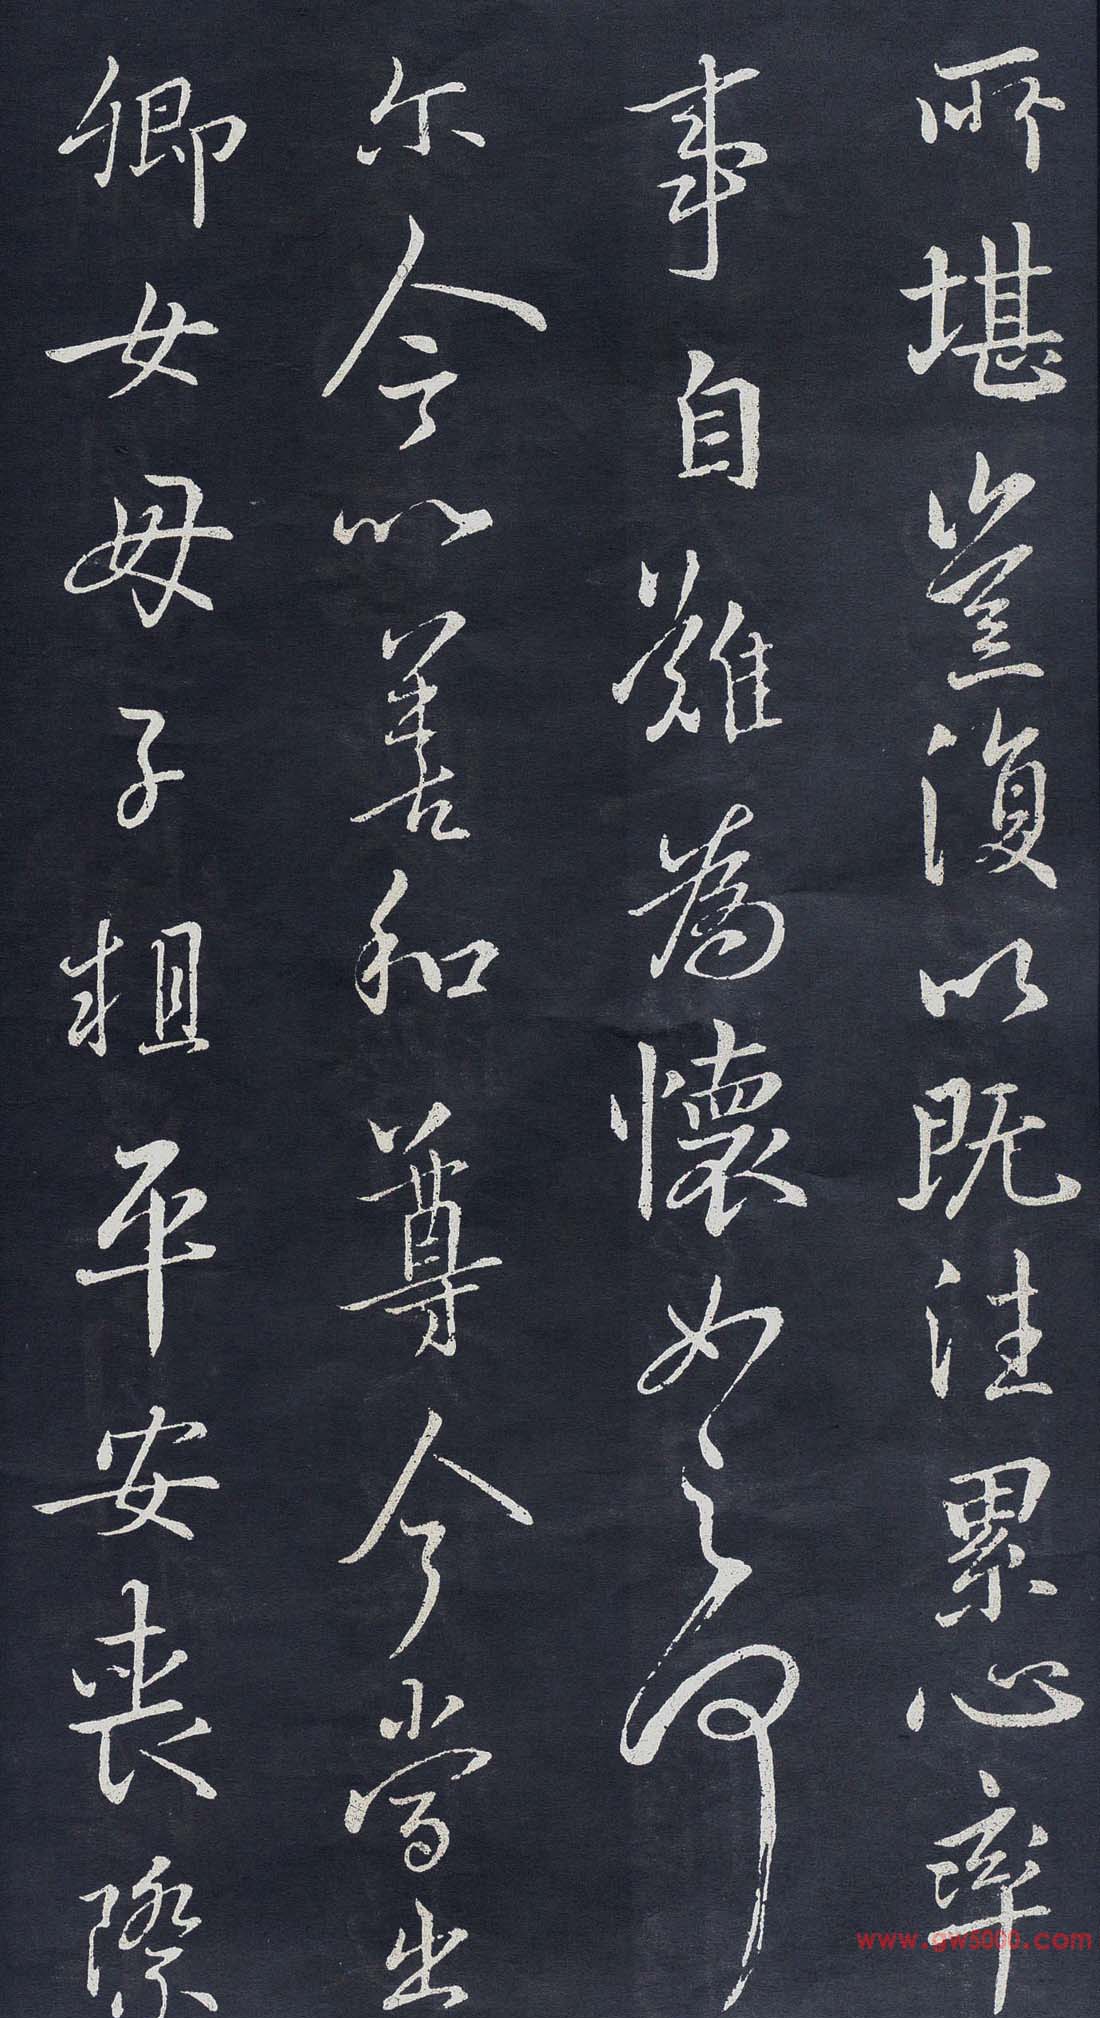 所堪豈復以既往累心率
事自難為懷如之何
尔今以善和尊今當出
卿女母子粗平安喪際
www.gw5000.com